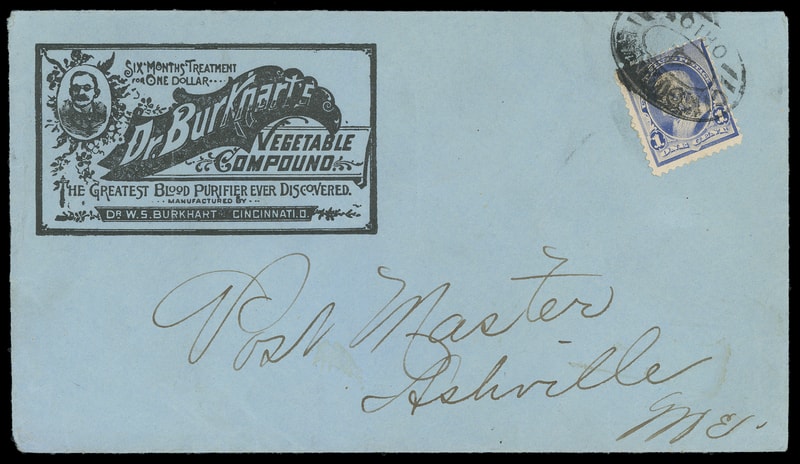 SIX MONTHS' TREATMENT
FOR ONE DOLLAR....
Dr. Burkhart's
VEGETABLE
COMPOUND.
THE GREATEST BLOOD PURIFIER EVER DISCOVERED.
MANUFACTURED BY
DR. W. S. BURKHART CINCINNATI. O.
1 1
ONE CENT
Post Master
Ashville
Me.